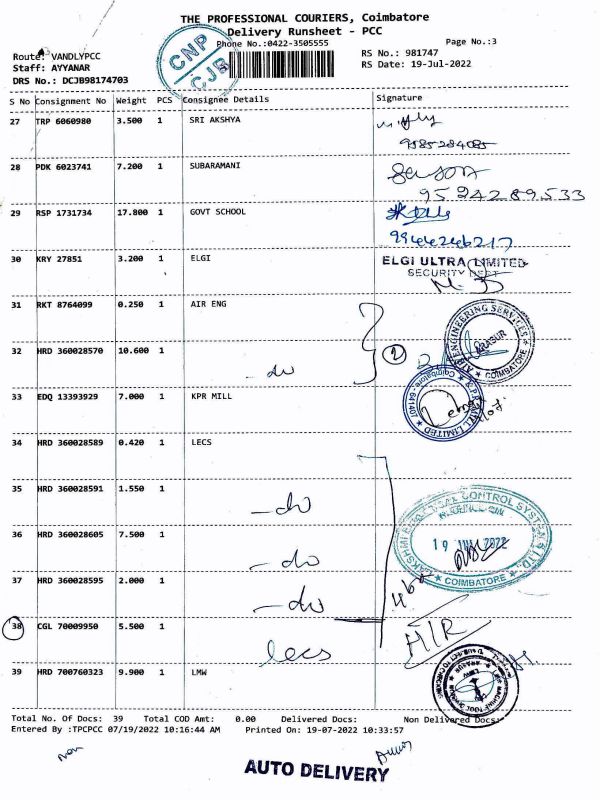 THE PROFESSIONAL COURIERS, Coimbatore
Delivery Runsheet - PCC
Phone No.:0422-3505555
Page No.:3
Route: VANDLYPCC
Staff: AYYANAR
DRS No.: DCJB98174703
RS No.: 981747
RS Date: 19-Jul-2022
CNP
CJB
S No Consignment No Weight PCS Consignee Details Signature
27 TRP 6060980 3.500 1 SRI AKSHYA
9585284085
28 PDK 6023741 7.200 1 SUBARAMANI
9594289533
29 RSP 1731734 17.800 1 GOVT SCHOOL
9944246217
30 KRY 27851 3.200 1 ELGI ELGI ULTRA LIMITED
SECURITY DEPT
31 RKT 8764099 0.250 1 AIR ENG
AIR ENGINEERING SERVICES
ARASUR
COIMBATORE
32 HRD 360028570 10.600 1 - do 2
33 EDQ 13393929 7.000 1 KPR MILL
K.P.R. MILL LIMITED
Coimbatore - 641407
34 HRD 360028589 0.420 1 LECS
35 HRD 360028591 1.550 1 - do
LAKSHMI ELECTRICAL CONTROL SYSTEMS LTD.
19 JUL 2022
COIMBATORE
36 HRD 360028605 7.500 1 - do
37 HRD 360028595 2.000 1 - do
38 CGL 70009950 5.500 1 lecs
39 HRD 700760323 9.900 1 LMW
Total No. Of Docs: 39 Total COD Amt: 0.00 Delivered Docs: Non Delivered Docs:
Entered By :TPCPCC 07/19/2022 10:16:44 AM Printed On: 19-07-2022 10:33:57
AUTO DELIVERY